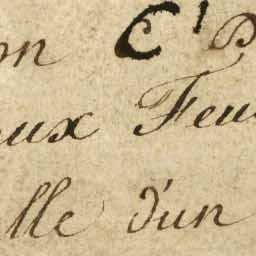 on C¹ P
eux Feu
lle d'un